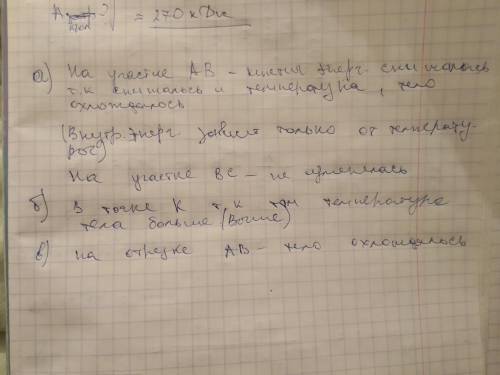 = 270 кДж
а) На участке АВ – кинетич энерг. снижалась
т.к снижалась и температура, тело
охлождалось
(Внутр. энерг зависит только от температу-
ры)
На участке ВС – не изменялась
б) в точке К т.к там температура
тела больше (Выше)
в) на отрезке АВ – тело охлождалось